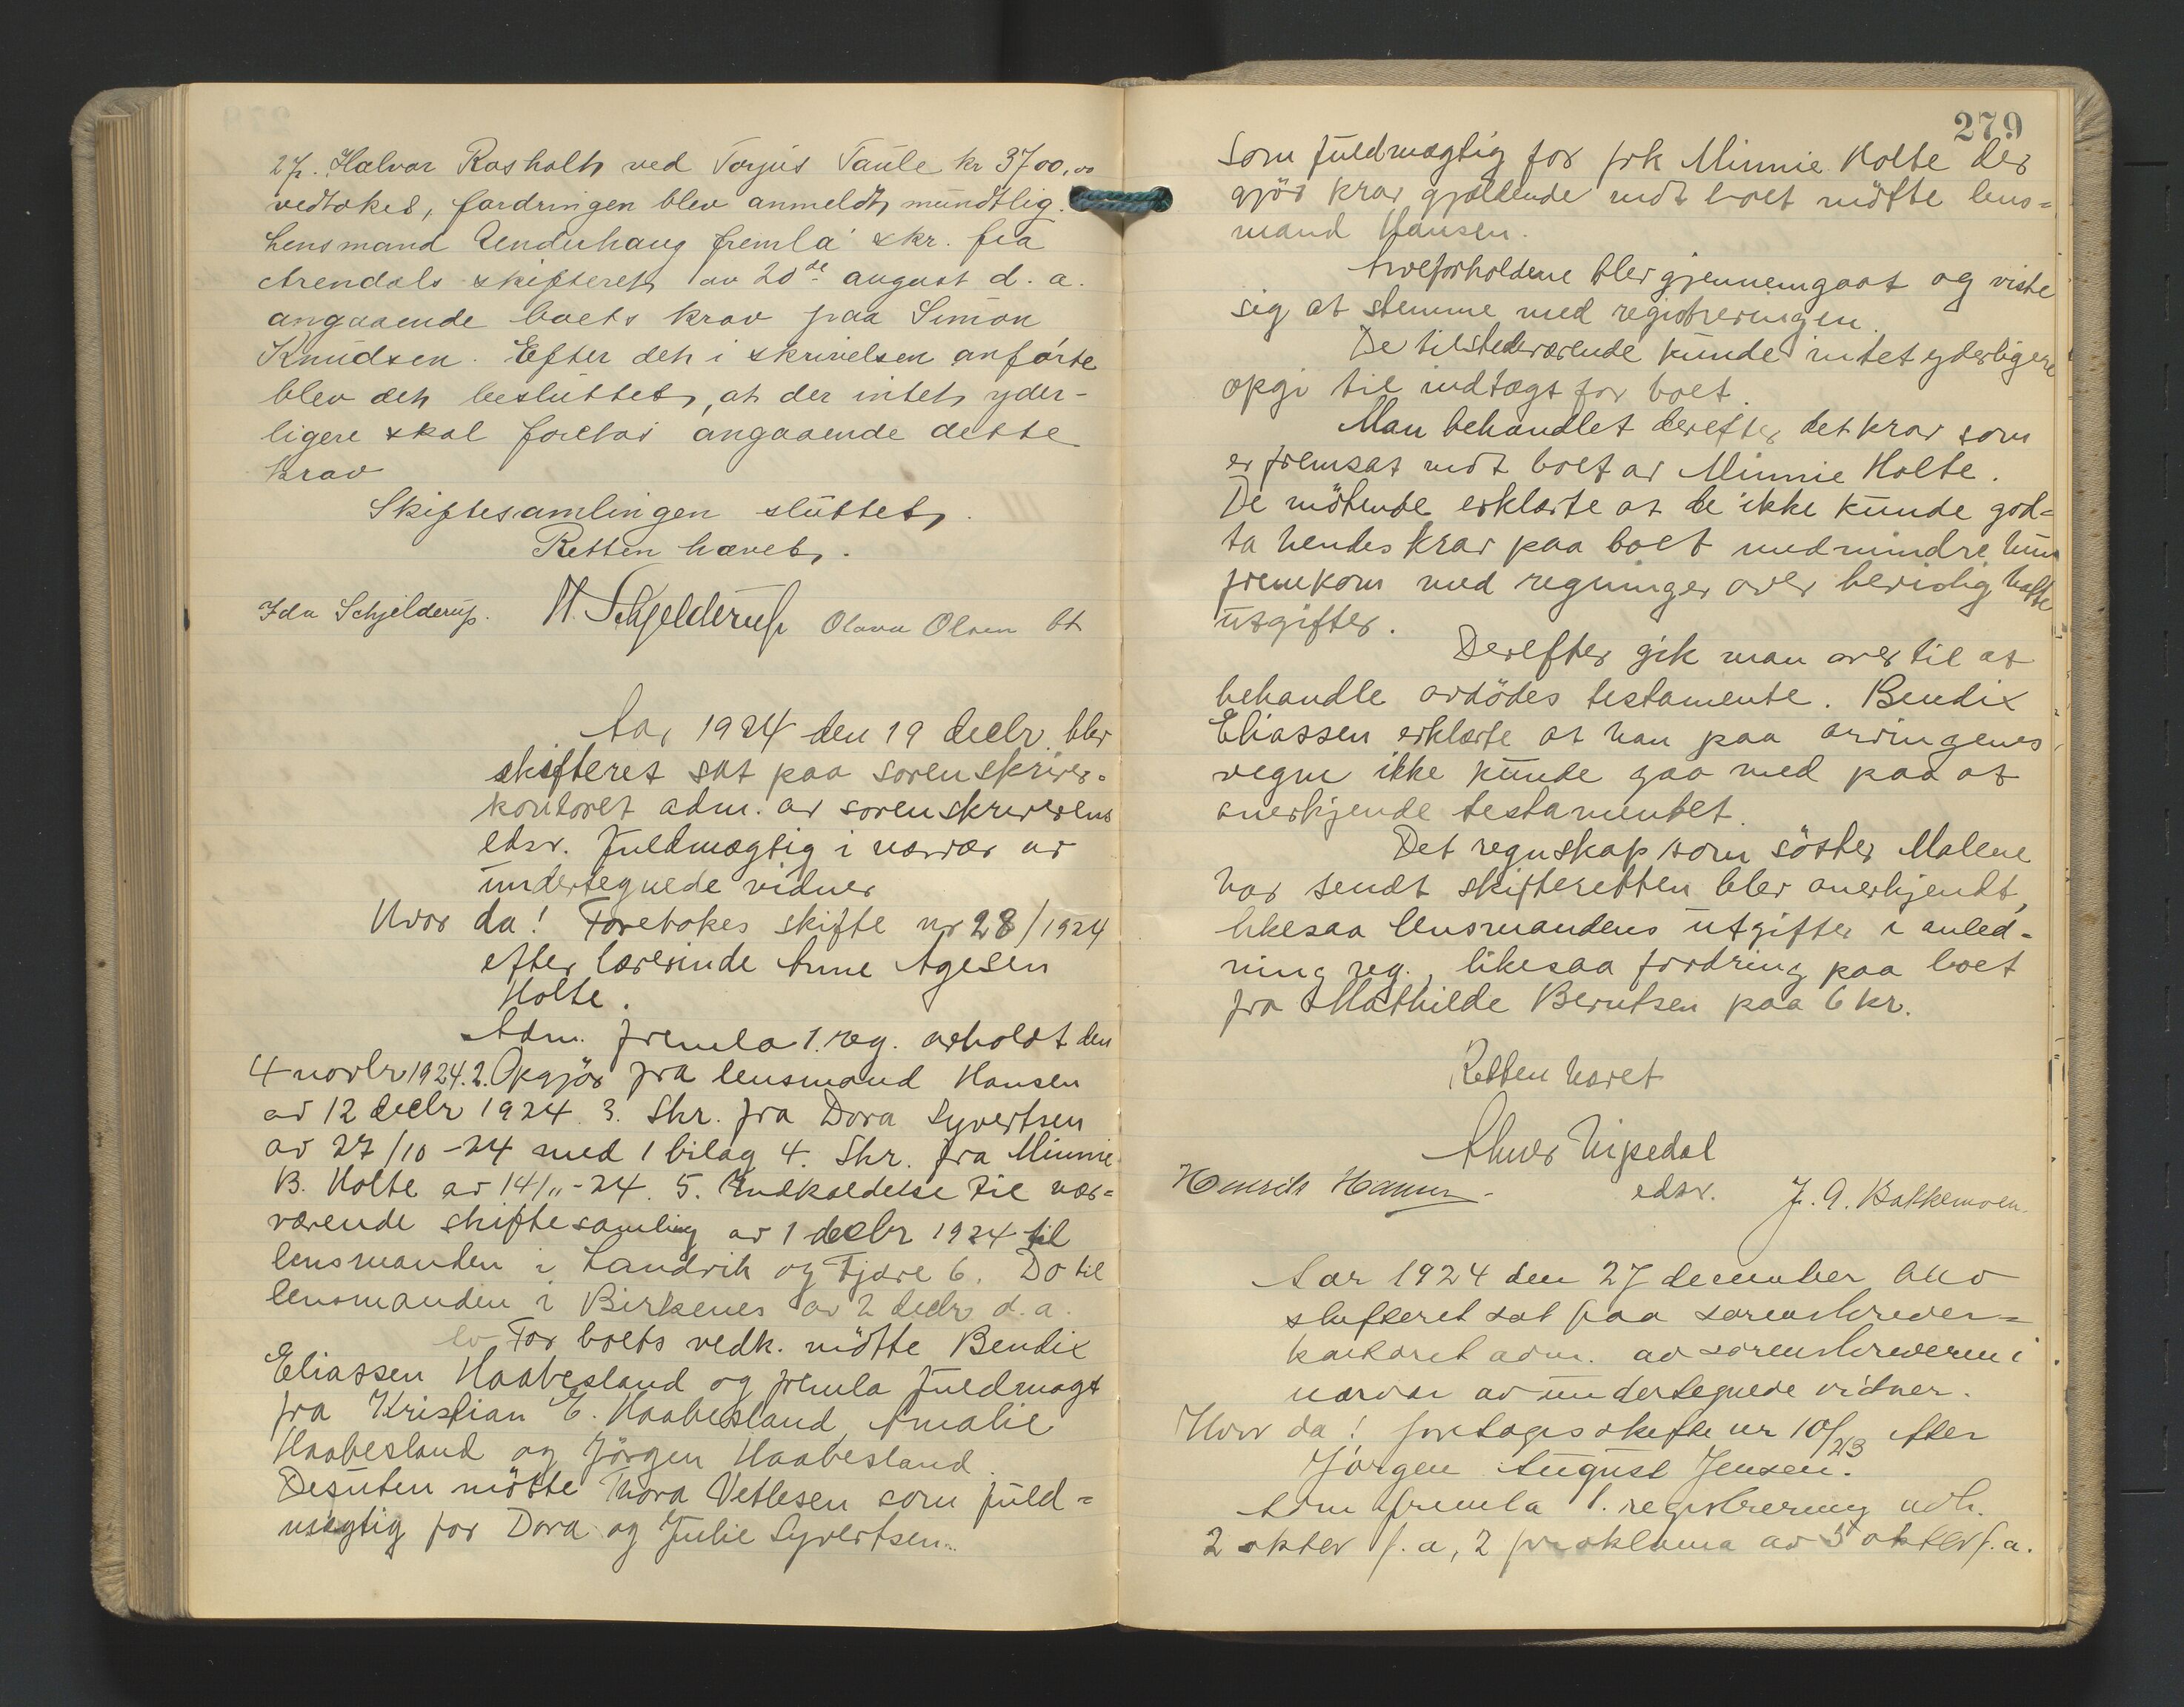 27. Halvor Rosholt ved Torjus Taule kr 3700,00
vedtokes, fordringen blev anmeldt mundtlig.
Lensmand Underhaug fremla skr. fra
Arendals skifteret av 20de august d. a.
angaaende boets krav paa Simon
Knudsen. Efter det i skrivelsen anførte
blev det besluttet, at der intet yder-
ligere skal foretas angaaende dette
krav
Skiftesamlingen sluttet.
Retten hævet.
Ida Schjelderup. H. Schjelderup Olava Olsen
Aar 1924 den 19 decbr. blev
skifteret sat paa sorenskriver-
kontoret adm. av sorenskriverens
edsv. fuldmægtig i nærvær av
undertegnede vidner
Hvor da! Foretokes skifte nr 28/1924
efter lærerinde Anne Agesen
Holte.
Adm. fremla 1. reg. avholdt den
4 novbr 1924. 2. Opgjør fra lensmand Hansen
av 12 decbr 1924. 3. Skr. fra Dora Syvertsen
av 27/10-24 med 1 bilag 4. Skr. fra Minnie
B. Holte av 14/11-24. 5. Indkaldelse til nær-
værende skiftesamling av 1 decbr 1924 til
lensmanden i Landvik og Fjære 6. Do til
lensmanden i Birkenes av 2 decbr d. a.
For boets vedk. mötte Bendix
Eliassen Haabesland og fremla fuldmagt
fra Kristian E. Haabesland, Amalie
Haabesland og Jörgen Haabesland.
Desuten mötte Thora Vetlesen som fuld-
mægtig for Dora og Julie Syvertsen.
279
som fuldmægtig for frk Minnie Holte der
gjör krav gjældende mot boet mötte lens-
mand Hansen.
Arveforholdene blev gjennemgaat og viste
sig at stemme med registreringen.
De tilstedeværende kunde intet yderligere
opgi til indtægt for boet.
Man behandlet derefter det krav som
er fremsat mot boet av Minnie Holte.
De mötende erklærte at de ikke kunde god-
ta hendes krav paa boet medmindre hun
fremkom med regninger over bevislig hafte
utgifter.
Derefter gik man over til at
behandle avdödes testamente. Bendix
Eliassen erklærte at han paa arvingenes
vegne ikke kunde gaa med paa at
anerkjende testamentet.
Det regnskap som söster Malene
har sendt skifteretten blev anerkjendt,
likesaa lensmandens utgifter i anled-
ning reg., likesaa fordring paa boet
fra Mathilde Berntsen paa 6 kr.
Retten hævet
Nipedal
Henrik Hansen edsv. J. A. Bakkemoen.
Aar 1924 den 27 december blev
skifteret sat paa sorenskriver-
kontoret adm. av sorenskriveren i
nærvær av undertegnede vidner.
Hvor da! foretoges skifte nr 10/23 efter
Jørgen August Jensen.
Adm fremla 1. registrering avh.
2 oktbr f. a, 2 proklama av 5 oktbr f. a.